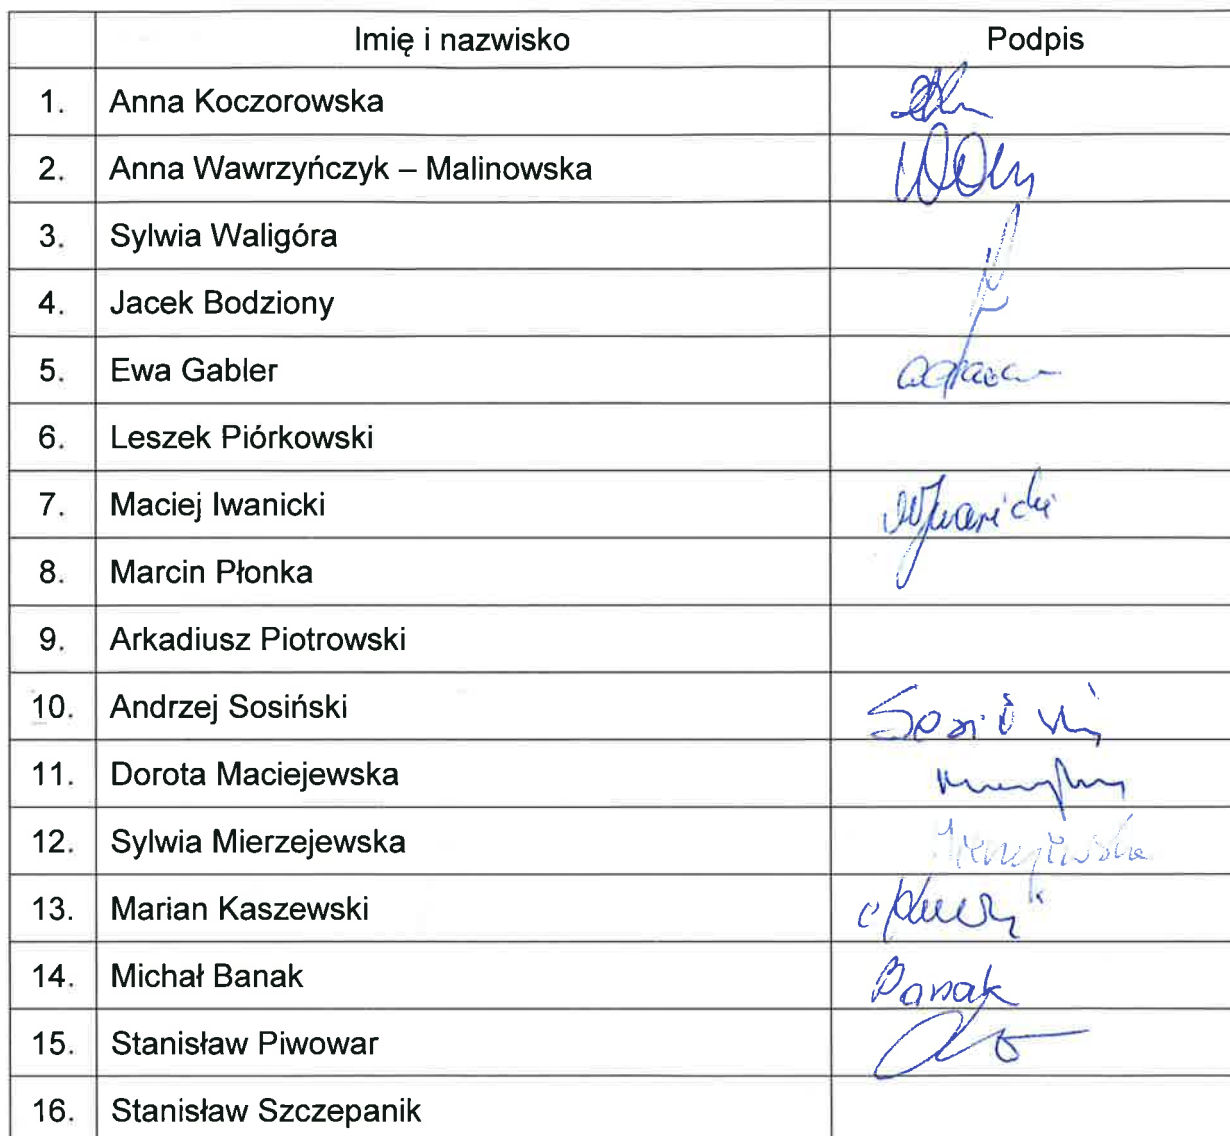 Imię i nazwisko Podpis
1. Anna Koczorowska
2. Anna Wawrzyńczyk – Malinowska
3. Sylwia Waligóra
4. Jacek Bodziony
5. Ewa Gabler
6. Leszek Piórkowski
7. Maciej Iwanicki MIwanicki
8. Marcin Płonka
9. Arkadiusz Piotrowski
10. Andrzej Sosiński Sosiński
11. Dorota Maciejewska
12. Sylwia Mierzejewska
13. Marian Kaszewski
14. Michał Banak Banak
15. Stanisław Piwowar
16. Stanisław Szczepanik